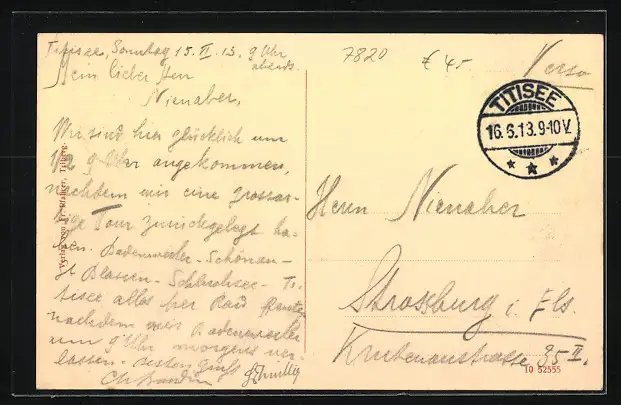 Titisee, Sonntag 15. VI. 13. 9 Uhr
abends.
Mein lieber Herr
Nienaber,
Wir sind hier glücklich um
1/2 9 Uhr angekommen,
nachdem wir eine grossar-
tige Tour zurückgelegt ha-
ben. Badenweiler - Schönau -
St Blasien - Schluchsee - Ti-
tisee alles per Rad
nachdem wir Badenweiler
um 9 Uhr morgens ver-
lassen. Besten Gruß
Verlag von Fr. Triberg.
7820
€ 45
Verso
TITISEE
16.6.13.9-10V.
Herrn Nienaber
Strassburg i. Els.
35 II.
10 52555